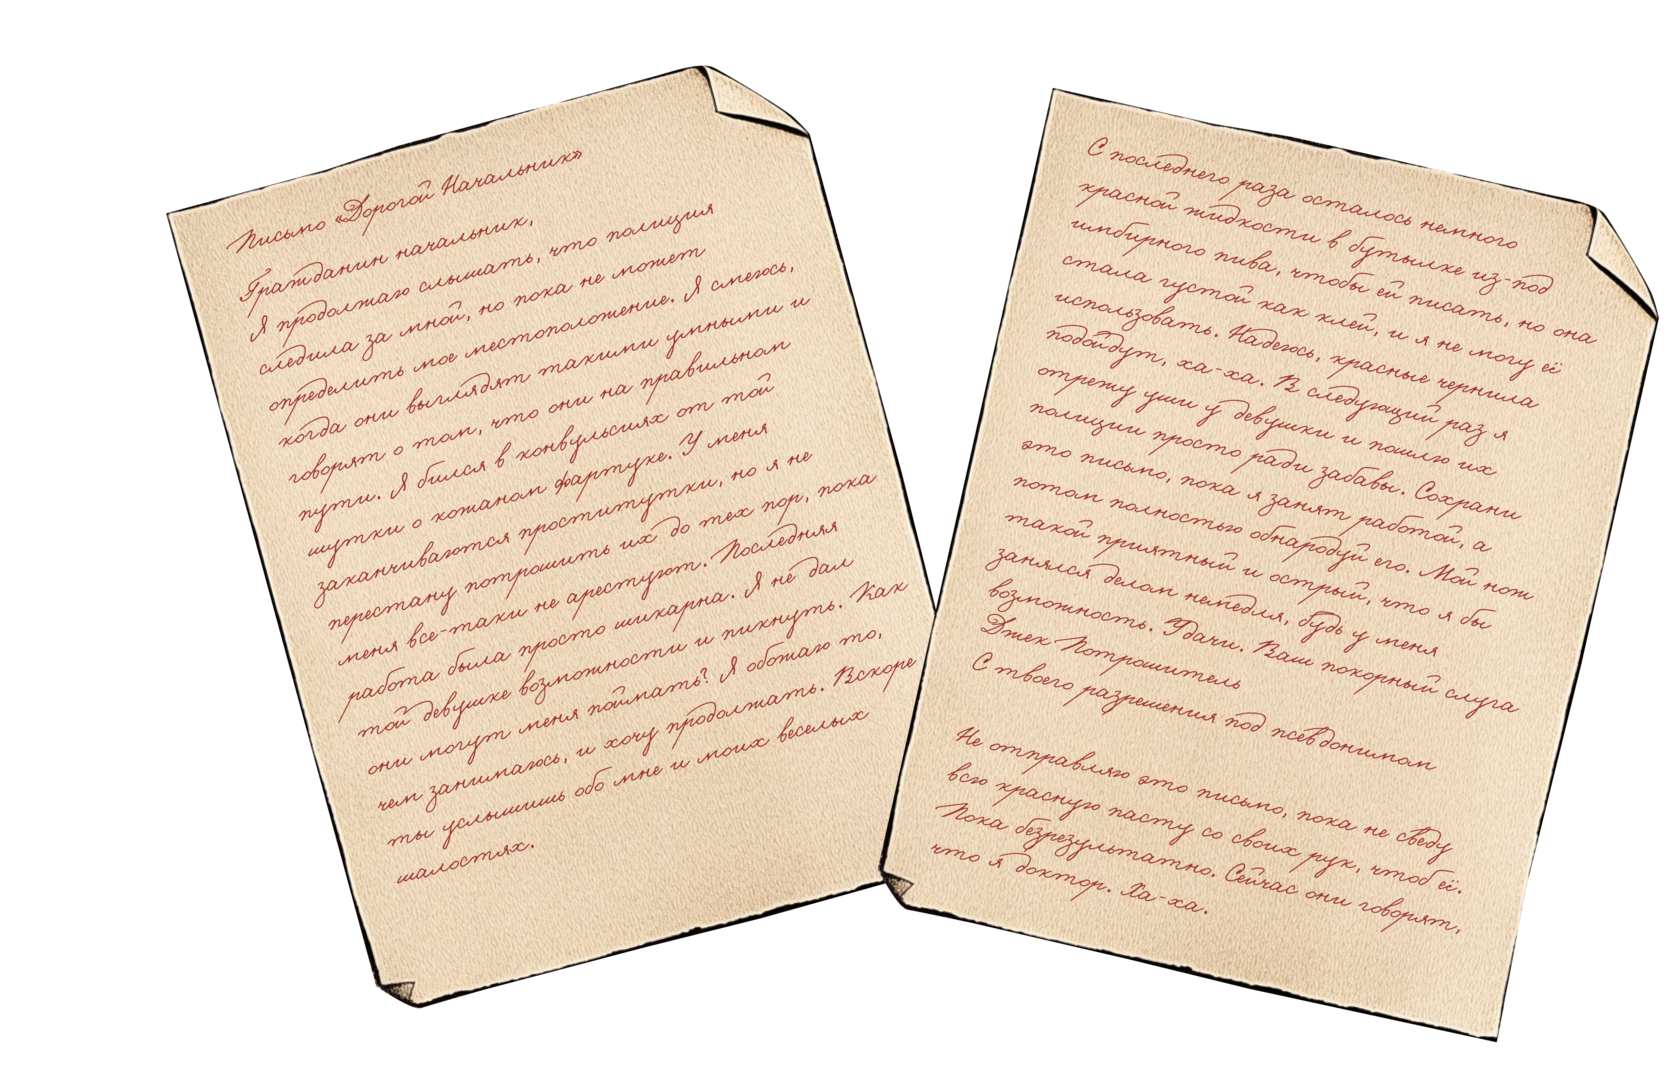 Письмо «Дорогой Начальник»
Гражданин начальник,
Я продолжаю слышать, что полиция
следила за мной, но пока не может
определить мое местоположение. Я смеюсь,
когда они выглядят такими умными и
говорят о том, что они на правильном
пути. Я бился в конвульсиях от той
шутки о кожаном фартуке. У меня
заканчиваются проститутки, но я не
перестану потрошить их до тех пор, пока
меня все-таки не арестуют. Последняя
работа была просто шикарна. Я не дал
той девушке возможности и пикнуть. Как
они могут меня поймать? Я обожаю то,
чем занимаюсь, и хочу продолжать. Вскоре
ты услышишь обо мне и моих веселых
шалостях.
С последнего раза осталось немного
красной жидкости в бутылке из-под
имбирного пива, чтобы ей писать, но она
стала густой как клей, и я не могу её
использовать. Надеюсь, красные чернила
подойдут, ха-ха. В следующий раз я
отрежу уши у девушки и пошлю их
полиции просто ради забавы. Сохрани
это письмо, пока я занят работой, а
потом полностью обнародуй его. Мой нож
такой приятный и острый, что я бы
занялся делом немедля, будь у меня
возможность. Удачи. Ваш покорный слуга
Джек Потрошитель
С твоего разрешения под псевдонимом
Не отправляю это письмо, пока не сведу
всю красную пасту со своих рук, чтоб её.
Пока безрезультатно. Сейчас они говорят,
что я доктор. Ха-ха.